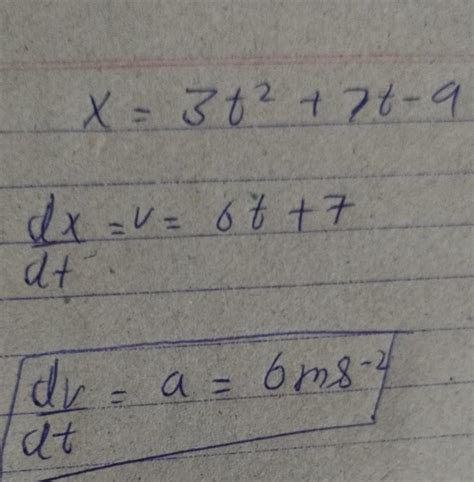 x = 3t² + 7t - 9
dx/dt = v = 6t + 7
dv/dt = a = 6ms⁻²